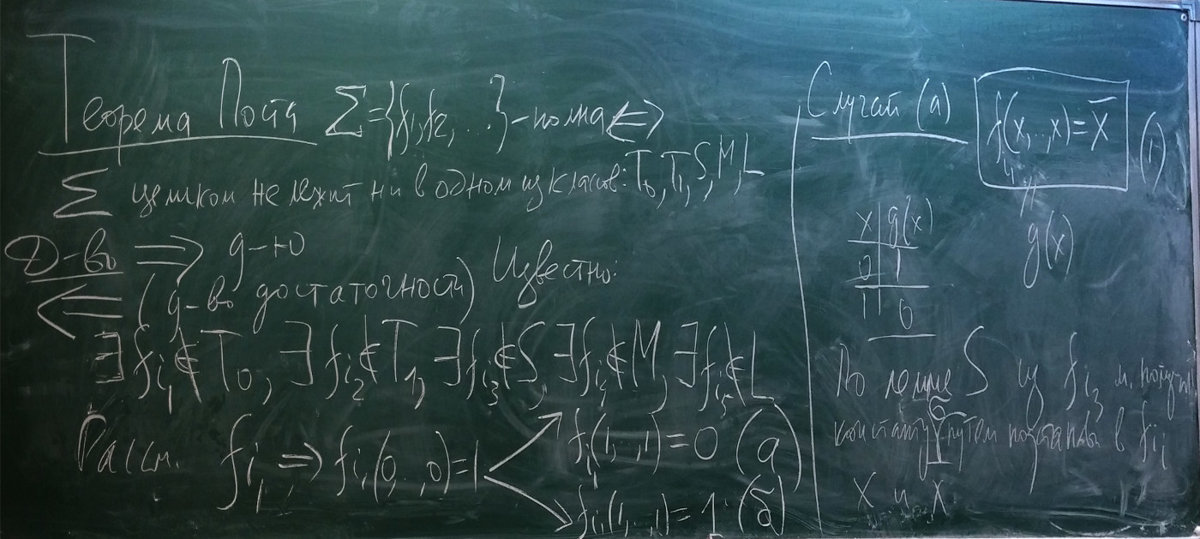 Теорема Поста Σ={f₁,f₂,...}-полна ⇔
Σ целиком не лежит ни в одном из класов: T₀, T₁, S, M, L
Д-во ⇒ д-но
⇐ (д-во достаточности) Известно:
∃ f_{i₁}∉T₀, ∃ f_{i₂}∉T₁, ∃ f_{i₃}∉S, ∃ f_{i₄}∉M, ∃ f_{i₅}∉L
Рассм. f_{i₁} ⇒ f_{i₁}(0,..,0)=1
f_{i₁}(1,..,1)=0 (а)
f_{i₁}(1,..,1)=1 (б)
Случай (а) f_{i₁}(x,..,x)=x̄ (1)
g(x)
x | g(x)
0 | 1
1 | 0
По лемме S из f_{i₃} м. получ
константу путем подстановки в f_{i₃}
x и x̄